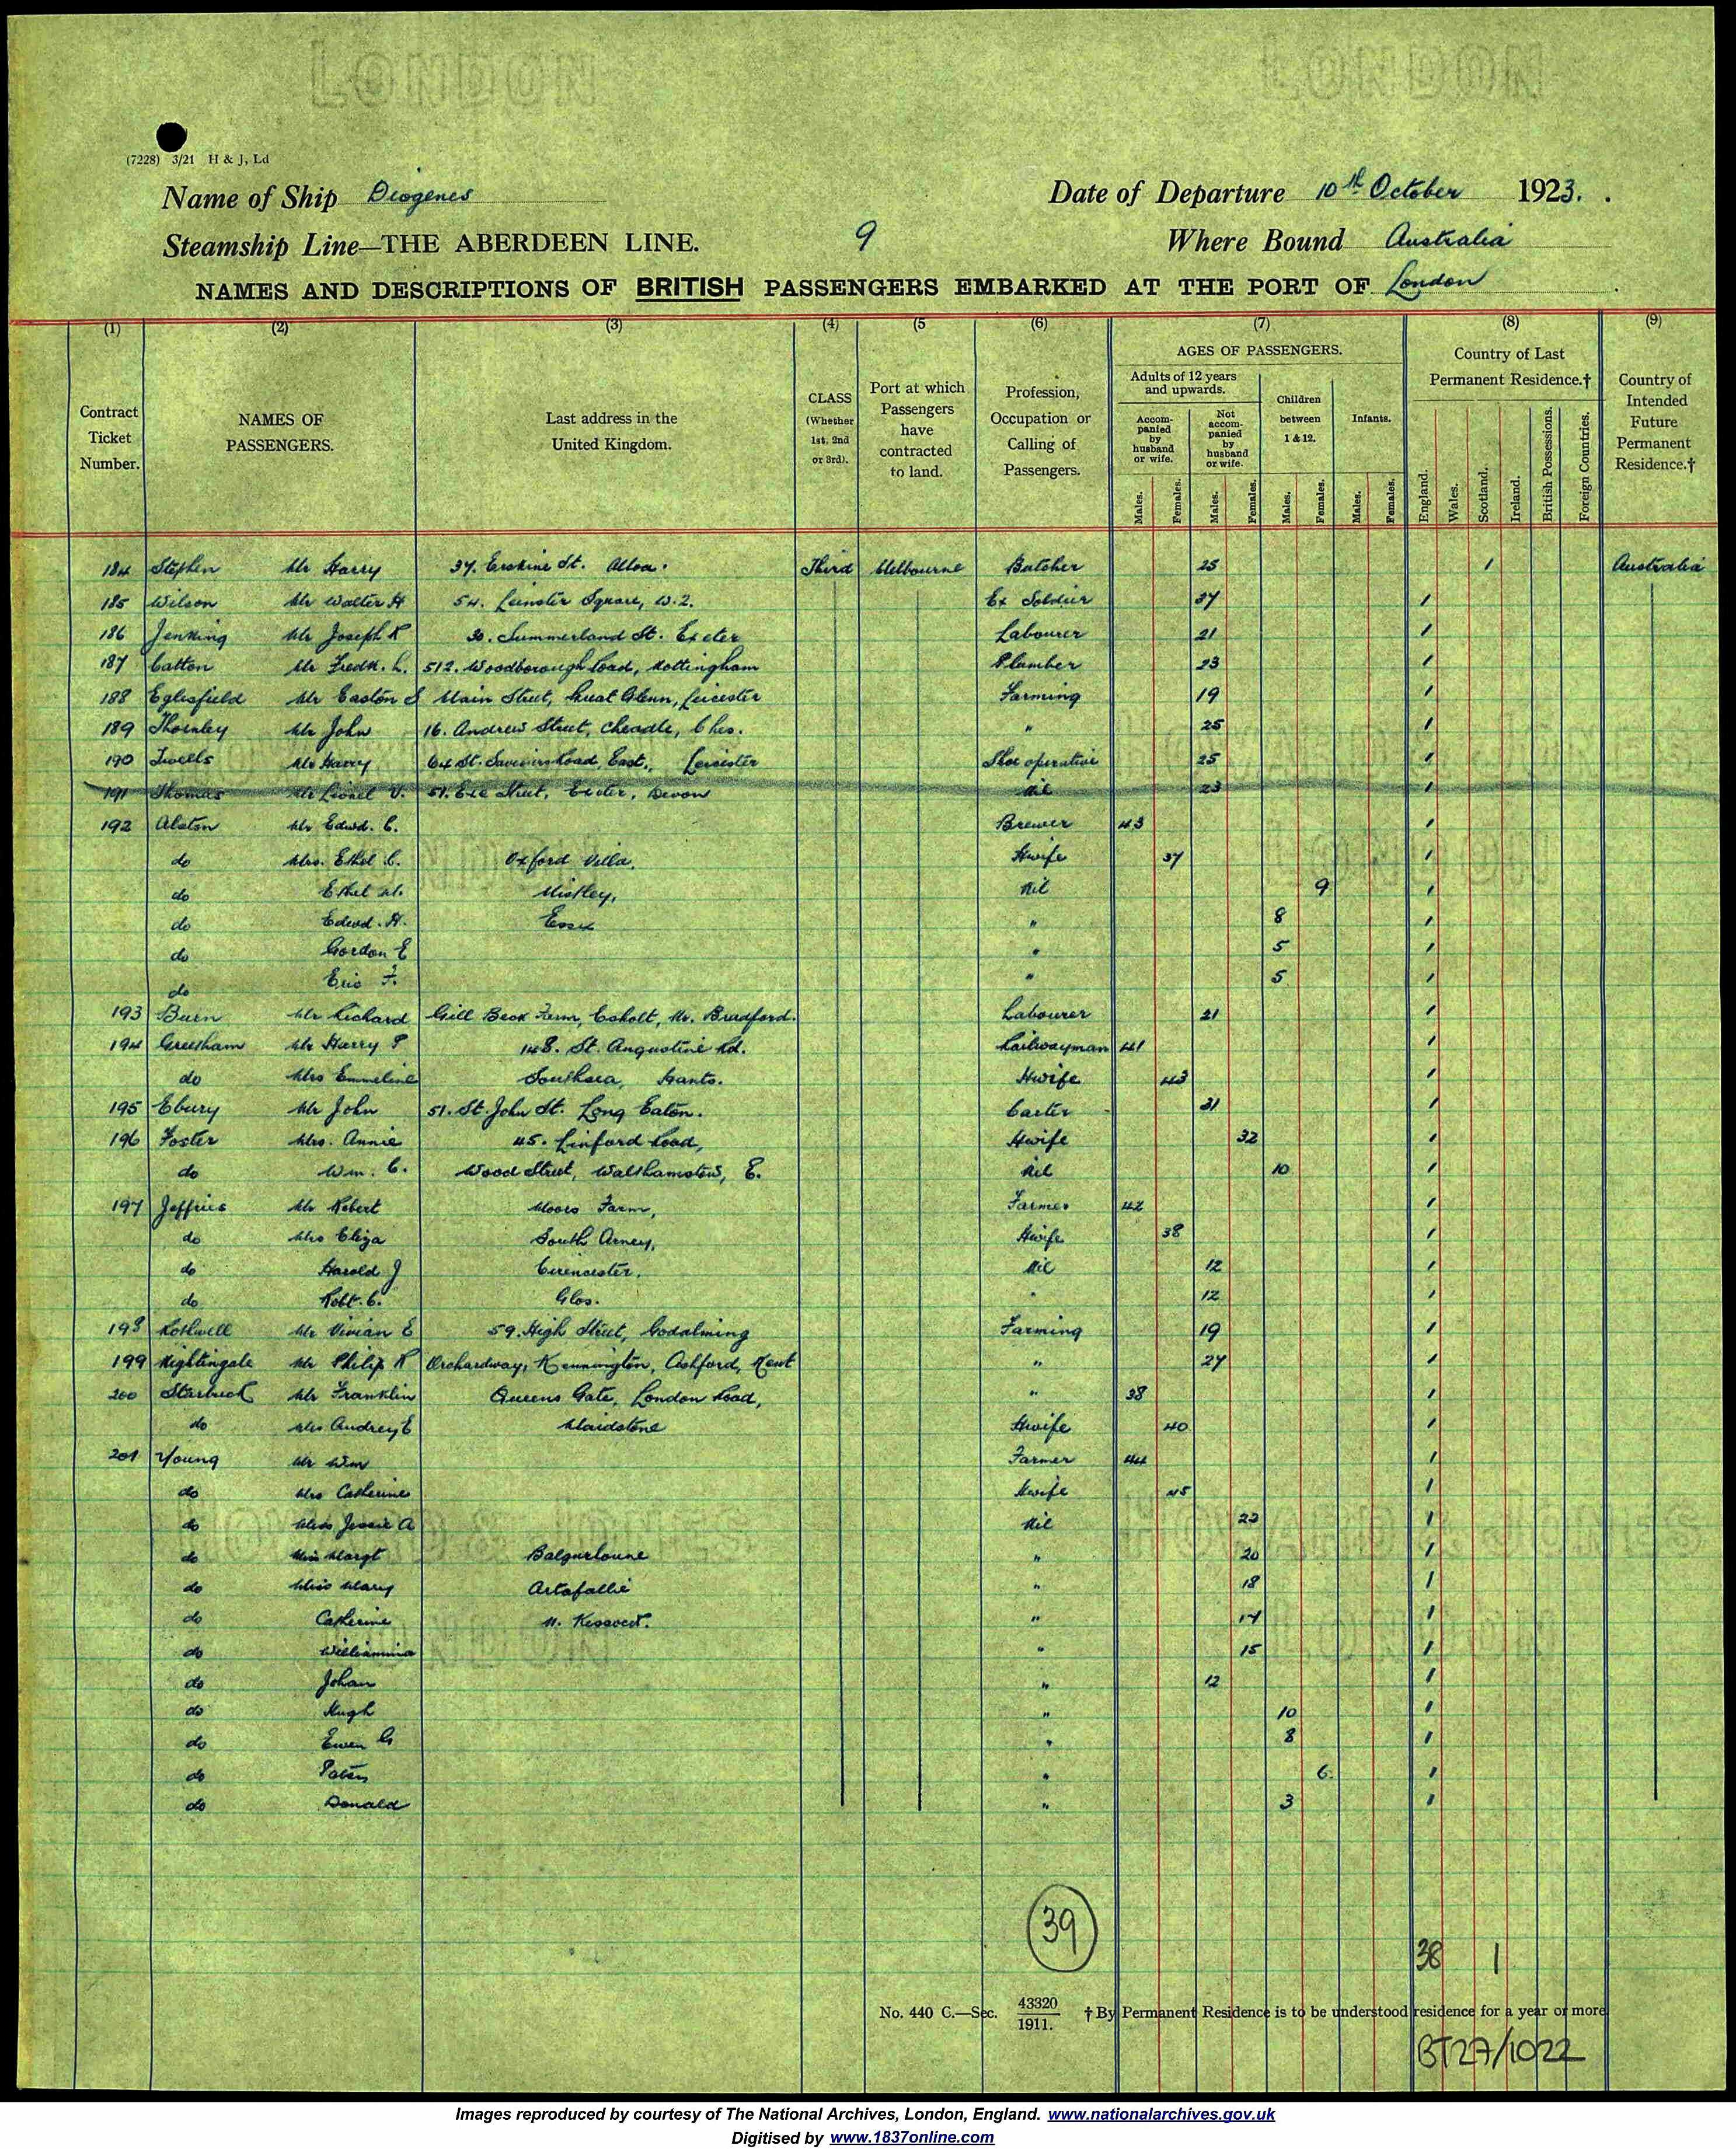 LONDON LONDON
(7228) 3/21 H & J, Ld
Name of Ship Diogenes Date of Departure 10th October 1923.
Steamship Line—THE ABERDEEN LINE. 9 Where Bound Australia
NAMES AND DESCRIPTIONS OF BRITISH PASSENGERS EMBARKED AT THE PORT OF London
(1) (2) (3) (4) (5 (6) (7) (8) (9)
Contract Ticket Number.
NAMES OF PASSENGERS.
Last address in the United Kingdom.
CLASS (Whether 1st, 2nd or 3rd).
Port at which Passengers have contracted to land.
Profession, Occupation or Calling of Passengers.
AGES OF PASSENGERS.
Adults of 12 years and upwards.
Accom-panied by husband or wife.
Not accom-panied by husband or wife.
Children between 1 & 12.
Infants.
Males. Females. Males. Females. Males. Females. Males. Females.
Country of Last Permanent Residence.†
England. Wales. Scotland. Ireland. British Possessions. Foreign Countries.
Country of Intended Future Permanent Residence.†
184 Stephen Mr Harry 37. Erskine St. Alloa. Third Melbourne Butcher 25 1 Australia
185 Wilson Mr Walter H 54. Leinster Square, W.2. Ex Soldier 37 1
186 Jenking Mr Joseph R 30. Summerland St. Exeter Labourer 21 1
187 Catton Mr Fredk. L. 512. Woodborough Road, Nottingham Plumber 23 1
188 Eglesfield Mr Easton S Main Street, Great Glenn, Leicester Farming 19 1
189 Thornley Mr John 16. Andrew Street, Cheadle, Ches. " 25 1
190 Twells Mr Harry 64 St. Saviours Road, East., Leicester Shoe operative 25 1
191 Thomas Mr Lionel V. 51. Exe Street, Exeter, Devon Nil 23 1
192 Alston Mr Edwd. C. Brewer 43 1
do Mrs. Ethel C. Oxford Villa, Hwife 37 1
do Ethel M. Mistley, Nil 9 1
do Edwd. H. Essex " 8 1
do Gordon E " 5 1
do Eric F. " 5 1
193 Burn Mr Richard Gill Beck Farm, Esholt, Nr. Bradford. Labourer 21 1
194 Greetham Mr Harry P 148. St. Augustine Rd. Railwayman 41 1
do Mrs Emmeline Southsea, Hants. Hwife 43 1
195 Ebury Mr John 51. St. John St. Long Eaton. Carter 31 1
196 Foster Mrs. Annie 45. Linford Road, Hwife 32 1
do Wm. C. Wood Street, Walthamstow, E. Nil 10 1
197 Jeffries Mr Robert Moors Farm, Farmer 42 1
do Mrs Eliza South Arney, Hwife 38 1
do Harold J Cirencester, Nil 12 1
do Robt. C. Glos. " 12 1
198 Rothwell Mr Vivian E 59. High Street, Godalming Farming 19 1
199 Nightingale Mr Philip R Orchardway, Kennington, Ashford, Kent " 27 1
200 Starbuck Mr Franklin Queens Gate, London Road, " 38 1
do Mrs Audrey E Maidstone Hwife 40 1
201 Young Mr Wm Farmer 44 1
do Mrs Catherine Hwife 45 1
do Miss Jessie A Nil 22 1
do Miss Margt Balgurloune " 20 1
do Miss Mary Artafallie " 18 1
do Catherine N. Kessock. " 17 1
do Williamina " 15 1
do Johan " 12 1
do Hugh " 10 1
do Ewen G " 8 1
do " 6. 1
do Donald " 3 1
39
38 1
No. 440 C.—Sec. 43320/1911. † By Permanent Residence is to be understood residence for a year or more
BT27/1022
Images reproduced by courtesy of The National Archives, London, England. www.nationalarchives.gov.uk
Digitised by www.1837online.com